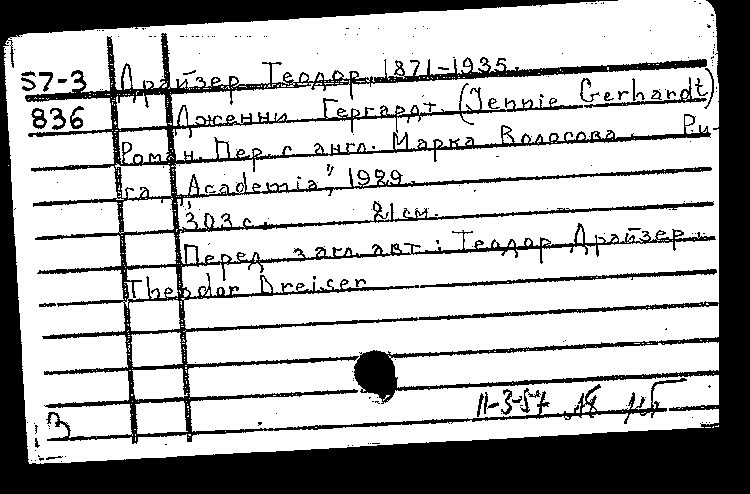 57-3 Драйзер Теодор, 1871-1935.
836 Дженни Гергардт. (Jennie Gerhardt)
Роман. Пер. с англ. Марка Волосова. Ри-
га, „Academia”, 1929.
303 с. 21 см.
Перед загл. авт.: Теодор Драйзер.
Theodor Dreiser
11-3-57
В